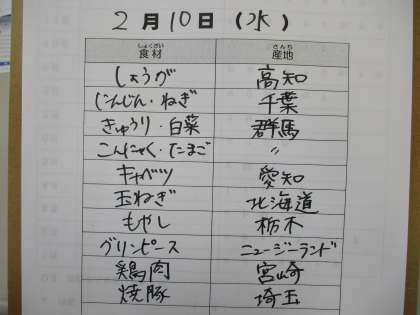 2月10日(水)
しょくざい さんち
食材 産地
しょうが 高知
にんじん・ねぎ 千葉
きゅうり・白菜 群馬
こんにゃく・たまご 〃
キャベツ 愛知
玉ねぎ 北海道
もやし 栃木
グリンピース ニュージーランド
鶏肉 宮崎
焼豚 埼玉